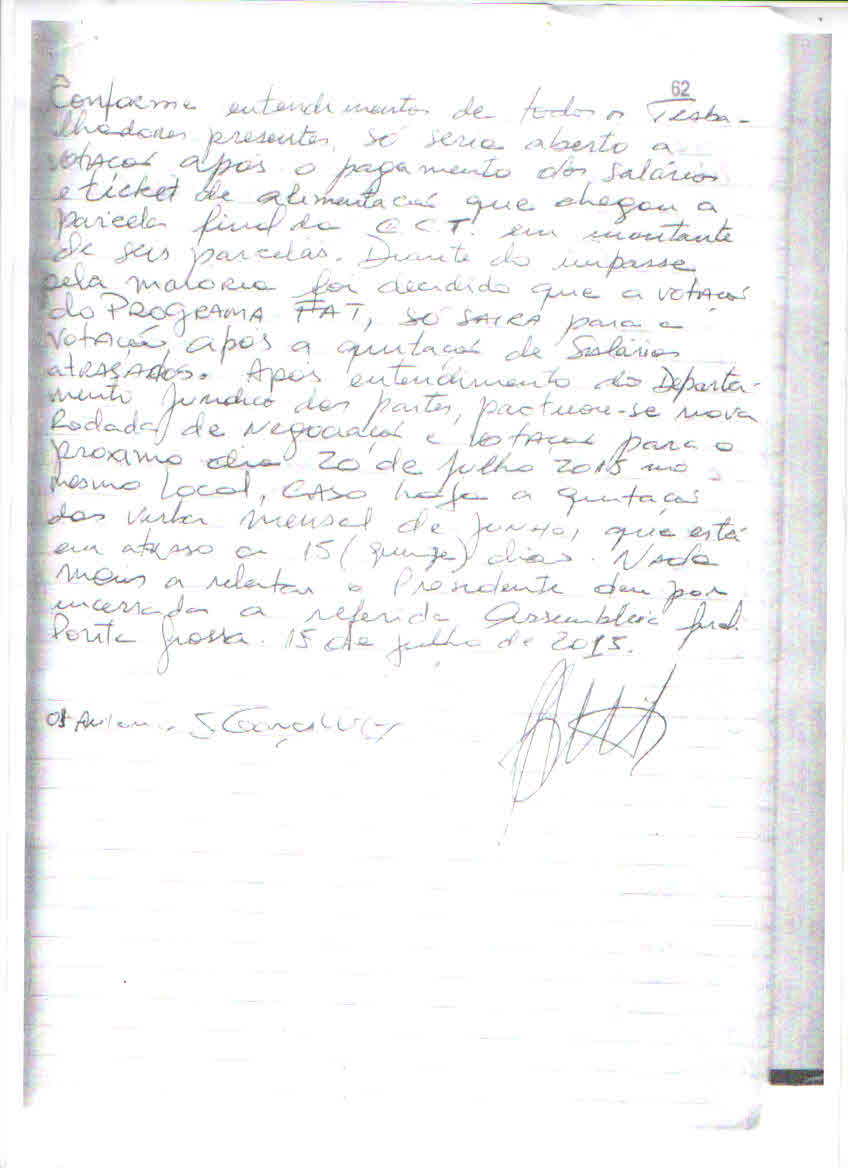 62
Conforme entendimentos de todos os Traba-
lhadores presentes, só seria aberto a
votação após o pagamento dos salários
e ticket de alimentação que chegou a
parcela final da CCT. em montante
de seis parcelas. Diante do impasse
pela maioria foi decidido que a votação
do PROGRAMA FAT, só SAIRA para a
votação, após a quitação de Salários
ATRASADOS. Após entendimento do Departa-
mento Jurídico das partes, pactuou-se nova
Rodada de Negociação e votação para o
proximo dia 20 de Julho 2015 no
mesmo local, CASO haja a quitação
das verba mensal de JUNHO, que está
em atraso a 15 (quinze) dias. Nada
mais a relatar o Presidente deu por
encerrada a referida Assembleia
Ponta Grossa. 15 de Julho de 2015.